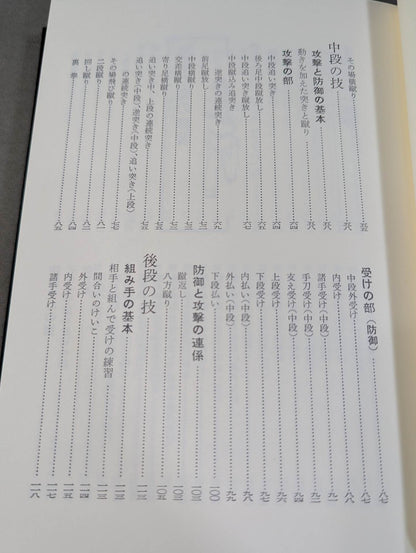 その場横蹴り……五五
中段の技
攻撃と防御の基本
動きを加えた突きと蹴り
攻撃の部……六四
中段追い突き……六四
後ろ足中段蹴放し……六六
中段追い突き蹴放し……六八
中段蹴込み追突き……六九
逆突きの連続突き
前足蹴放し
交差横蹴り
寄り足横蹴り
追い突き中、上段の連続突き
追い突き（中段）、逆突き（中段）、追い突き（上段）
の連続突き
その場飛び蹴り
二段蹴り……八一
回し蹴り……八三
裏拳……八五
受けの部（防御）……八七
中段外受け……八七
内受け……八八
諸手受け（中段）……九一
手刀受け（中段）……九二
支え受け（中段）……九四
上段受け……九六
下段受け……九七
内払い（中段）
外払い（中段）……九九
下段払い……一〇〇
防御と攻撃の連係……一〇三
蹴返し……一〇三
八方蹴り……一〇五
後段の技……一一三
組み手の基本……一一三
相手と組んで受けの練習……一一三
間合いのけいこ
外受け
内受け
諸手受け……一一八